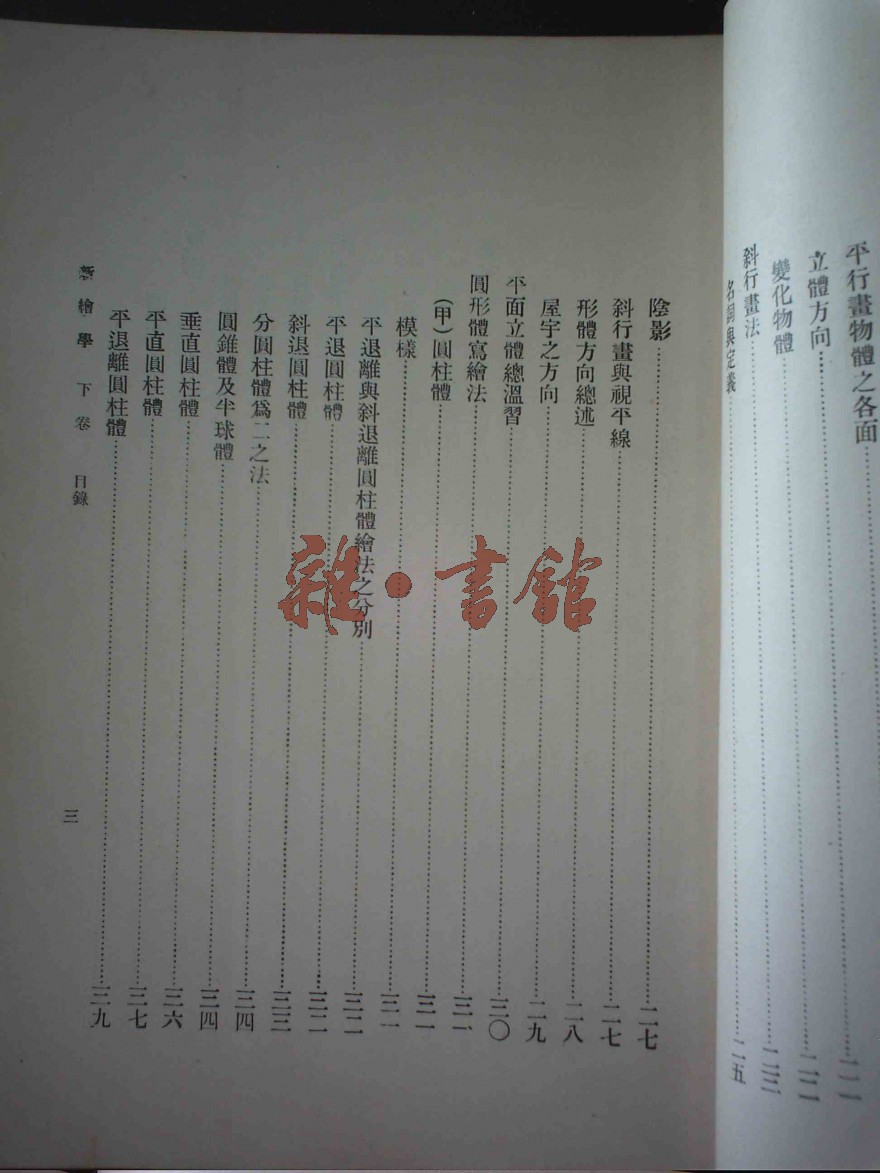 平行畫物體之各面……二一
立體方向……二二
變化物體……二三
斜行畫法……二五
名詞與定義……
陰影……二七
斜行畫與視平線……二七
形體方向總述……二八
屋宇之方向……二九
平面立體總溫習……三〇
圓形體寫繪法……三一
(甲)圓柱體……三一
模樣……三一
平退離與斜退離圓柱體繪法之分別……三二
平退圓柱體……三二
斜退圓柱體……三三
分圓柱體爲二之法……三四
圓錐體及半球體……三四
垂直圓柱體……三六
平直圓柱體……三七
平退離圓柱體……三九
新繪學 下卷 目錄 三
雜·書館